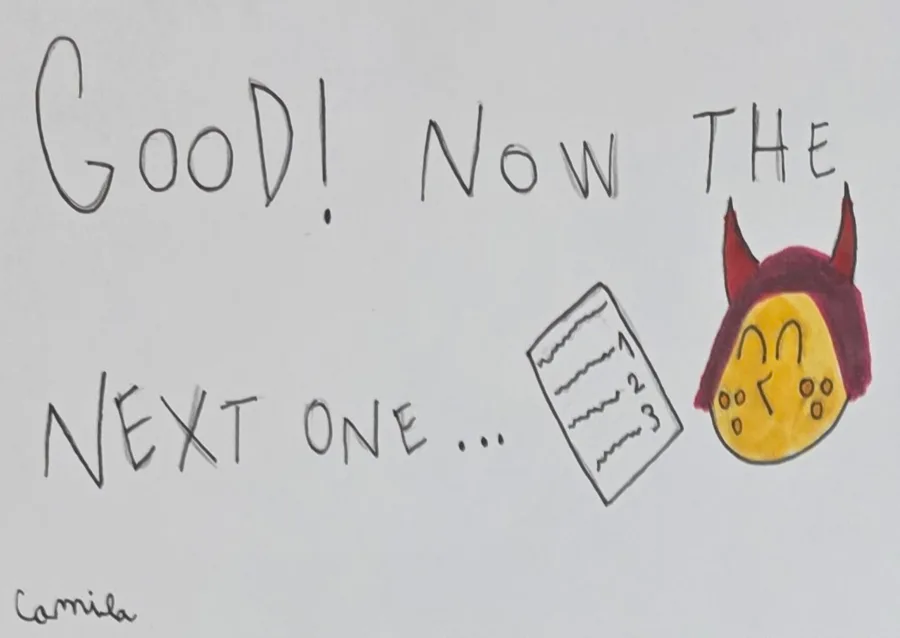 GOOD! NOW THE
NEXT ONE...
1
2
3
Camila